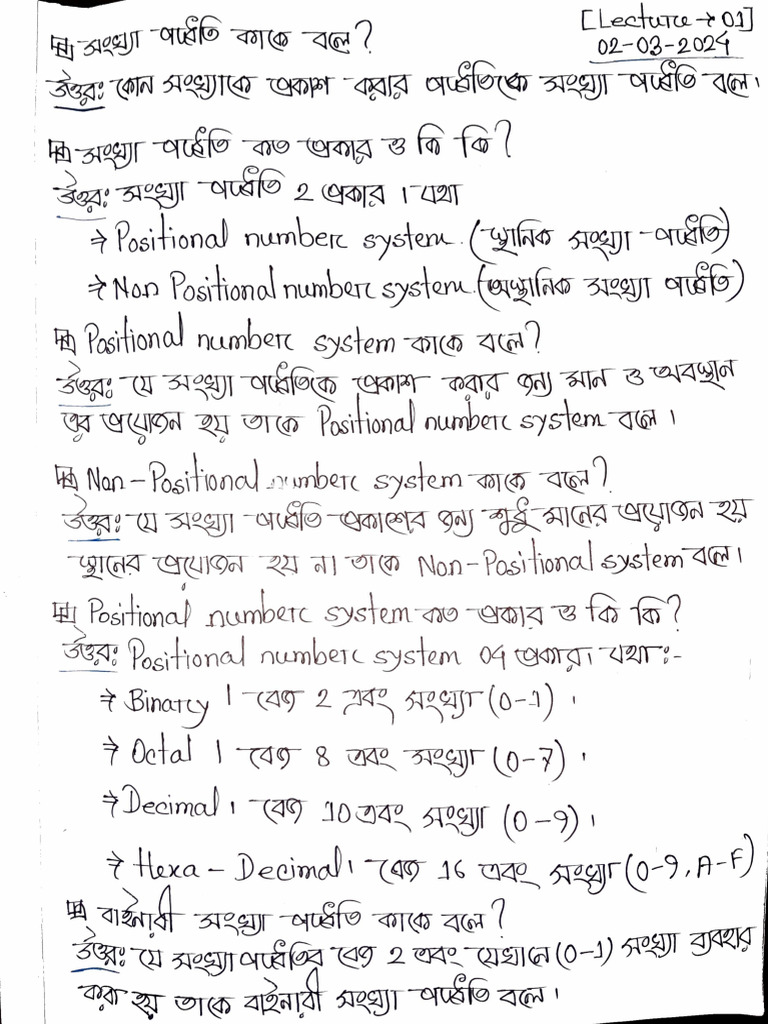 [Lecture → 01]
02-03-2024
⊞ সংখ্যা পদ্ধতি কাকে বলে?
উত্তর: কোন সংখ্যাকে প্রকাশ করার পদ্ধতিকে সংখ্যা পদ্ধতি বলে।
⊞ সংখ্যা পদ্ধতি কত প্রকার ও কি কি?
উত্তর: সংখ্যা পদ্ধতি 2 প্রকার। যথা
→ Positional number system. (স্থানিক সংখ্যা-পদ্ধতি)
→ Non Positional number system. (অস্থানিক সংখ্যা পদ্ধতি)
⊞ Positional number system কাকে বলে?
উত্তর: যে সংখ্যা পদ্ধতিকে প্রকাশ করার জন্য মান ও অবস্থান
এর প্রয়োজন হয় তাকে Positional number system বলে।
⊞ Non-Positional number system কাকে বলে?
উত্তর: যে সংখ্যা পদ্ধতি প্রকাশের জন্য শুধু মানের প্রয়োজন হয়
স্থানের প্রয়োজন হয় না তাকে Non-Positional system বলে।
⊞ Positional number system কত প্রকার ও কি কি?
উত্তর: Positional number system 04 প্রকার। যথা:-
→ Binary। বেজ 2 এবং সংখ্যা (0-1)।
→ Octal। বেজ 8 এবং সংখ্যা (0-7)।
→ Decimal। বেজ 10 এবং সংখ্যা (0-9)।
→ Hexa-Decimal। বেজ 16 এবং সংখ্যা (0-9, A-F)
⊞ বাইনারী সংখ্যা পদ্ধতি কাকে বলে?
উত্তর: যে সংখ্যা পদ্ধতির বেজ 2 এবং যেখানে (0-1) সংখ্যা ব্যবহার
করা হয় তাকে বাইনারী সংখ্যা পদ্ধতি বলে।